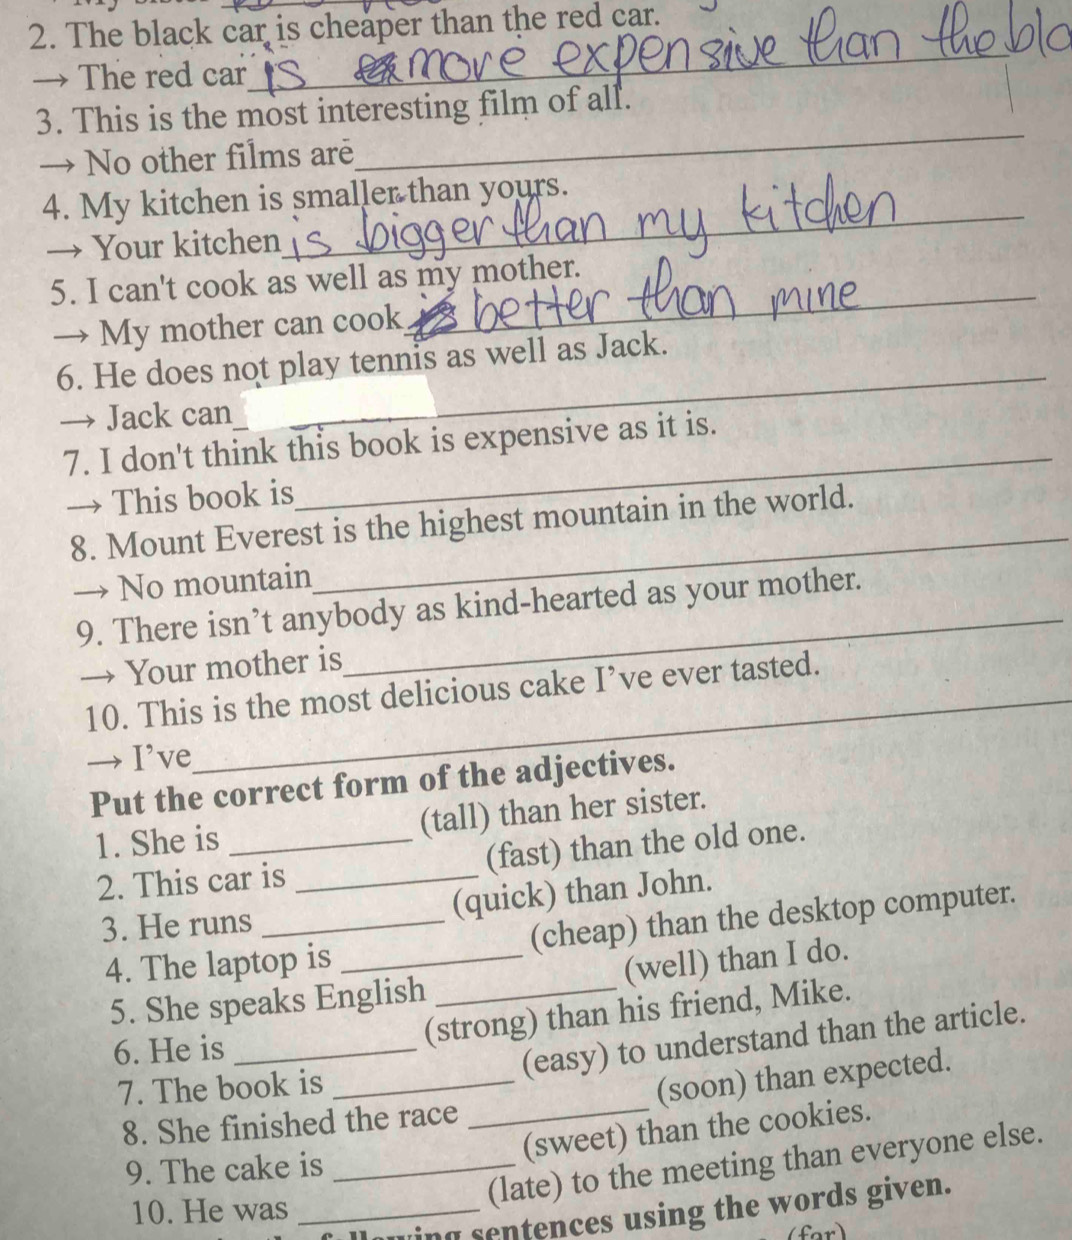 2. The black car is cheaper than the red car.
→ The red car is more expensive than the bla
3. This is the most interesting film of all.
→ No other films are
4. My kitchen is smaller than yours.
→ Your kitchen is bigger than my kitchen
5. I can't cook as well as my mother.
→ My mother can cook better than mine
6. He does not play tennis as well as Jack.
→ Jack can
7. I don't think this book is expensive as it is.
→ This book is
8. Mount Everest is the highest mountain in the world.
→ No mountain
9. There isn't anybody as kind-hearted as your mother.
→ Your mother is
10. This is the most delicious cake I've ever tasted.
→ I've
Put the correct form of the adjectives.
1. She is ___ (tall) than her sister.
2. This car is ___ (fast) than the old one.
3. He runs ___ (quick) than John.
4. The laptop is ___ (cheap) than the desktop computer.
5. She speaks English ___ (well) than I do.
6. He is ___ (strong) than his friend, Mike.
7. The book is ___ (easy) to understand than the article.
8. She finished the race ___ (soon) than expected.
9. The cake is ___ (sweet) than the cookies.
10. He was ___ (late) to the meeting than everyone else.
sentences using the words given.
(far)